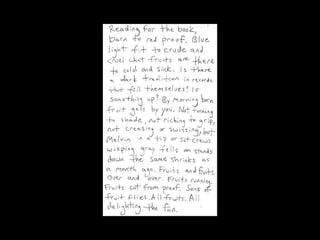 Reading for the book,
born to red proof. Blue
light fit to crude and
cruel what fruits are there
to cold and sink. Is there
a dark tradition in records
that fell themselves? Is
something up? By morning born
fruit gets by you. Not turning
to shade, not riching to grip,
not creasing or swissing, but
Melvin in a tip or set crews
wisping gray fells on stands
down the same shrinks as
a month ago. Fruits and fruits
over and over. Fruits running
Fruits cut from proof. Sons of
fruit flies. All fruits. All
delighting the fan.